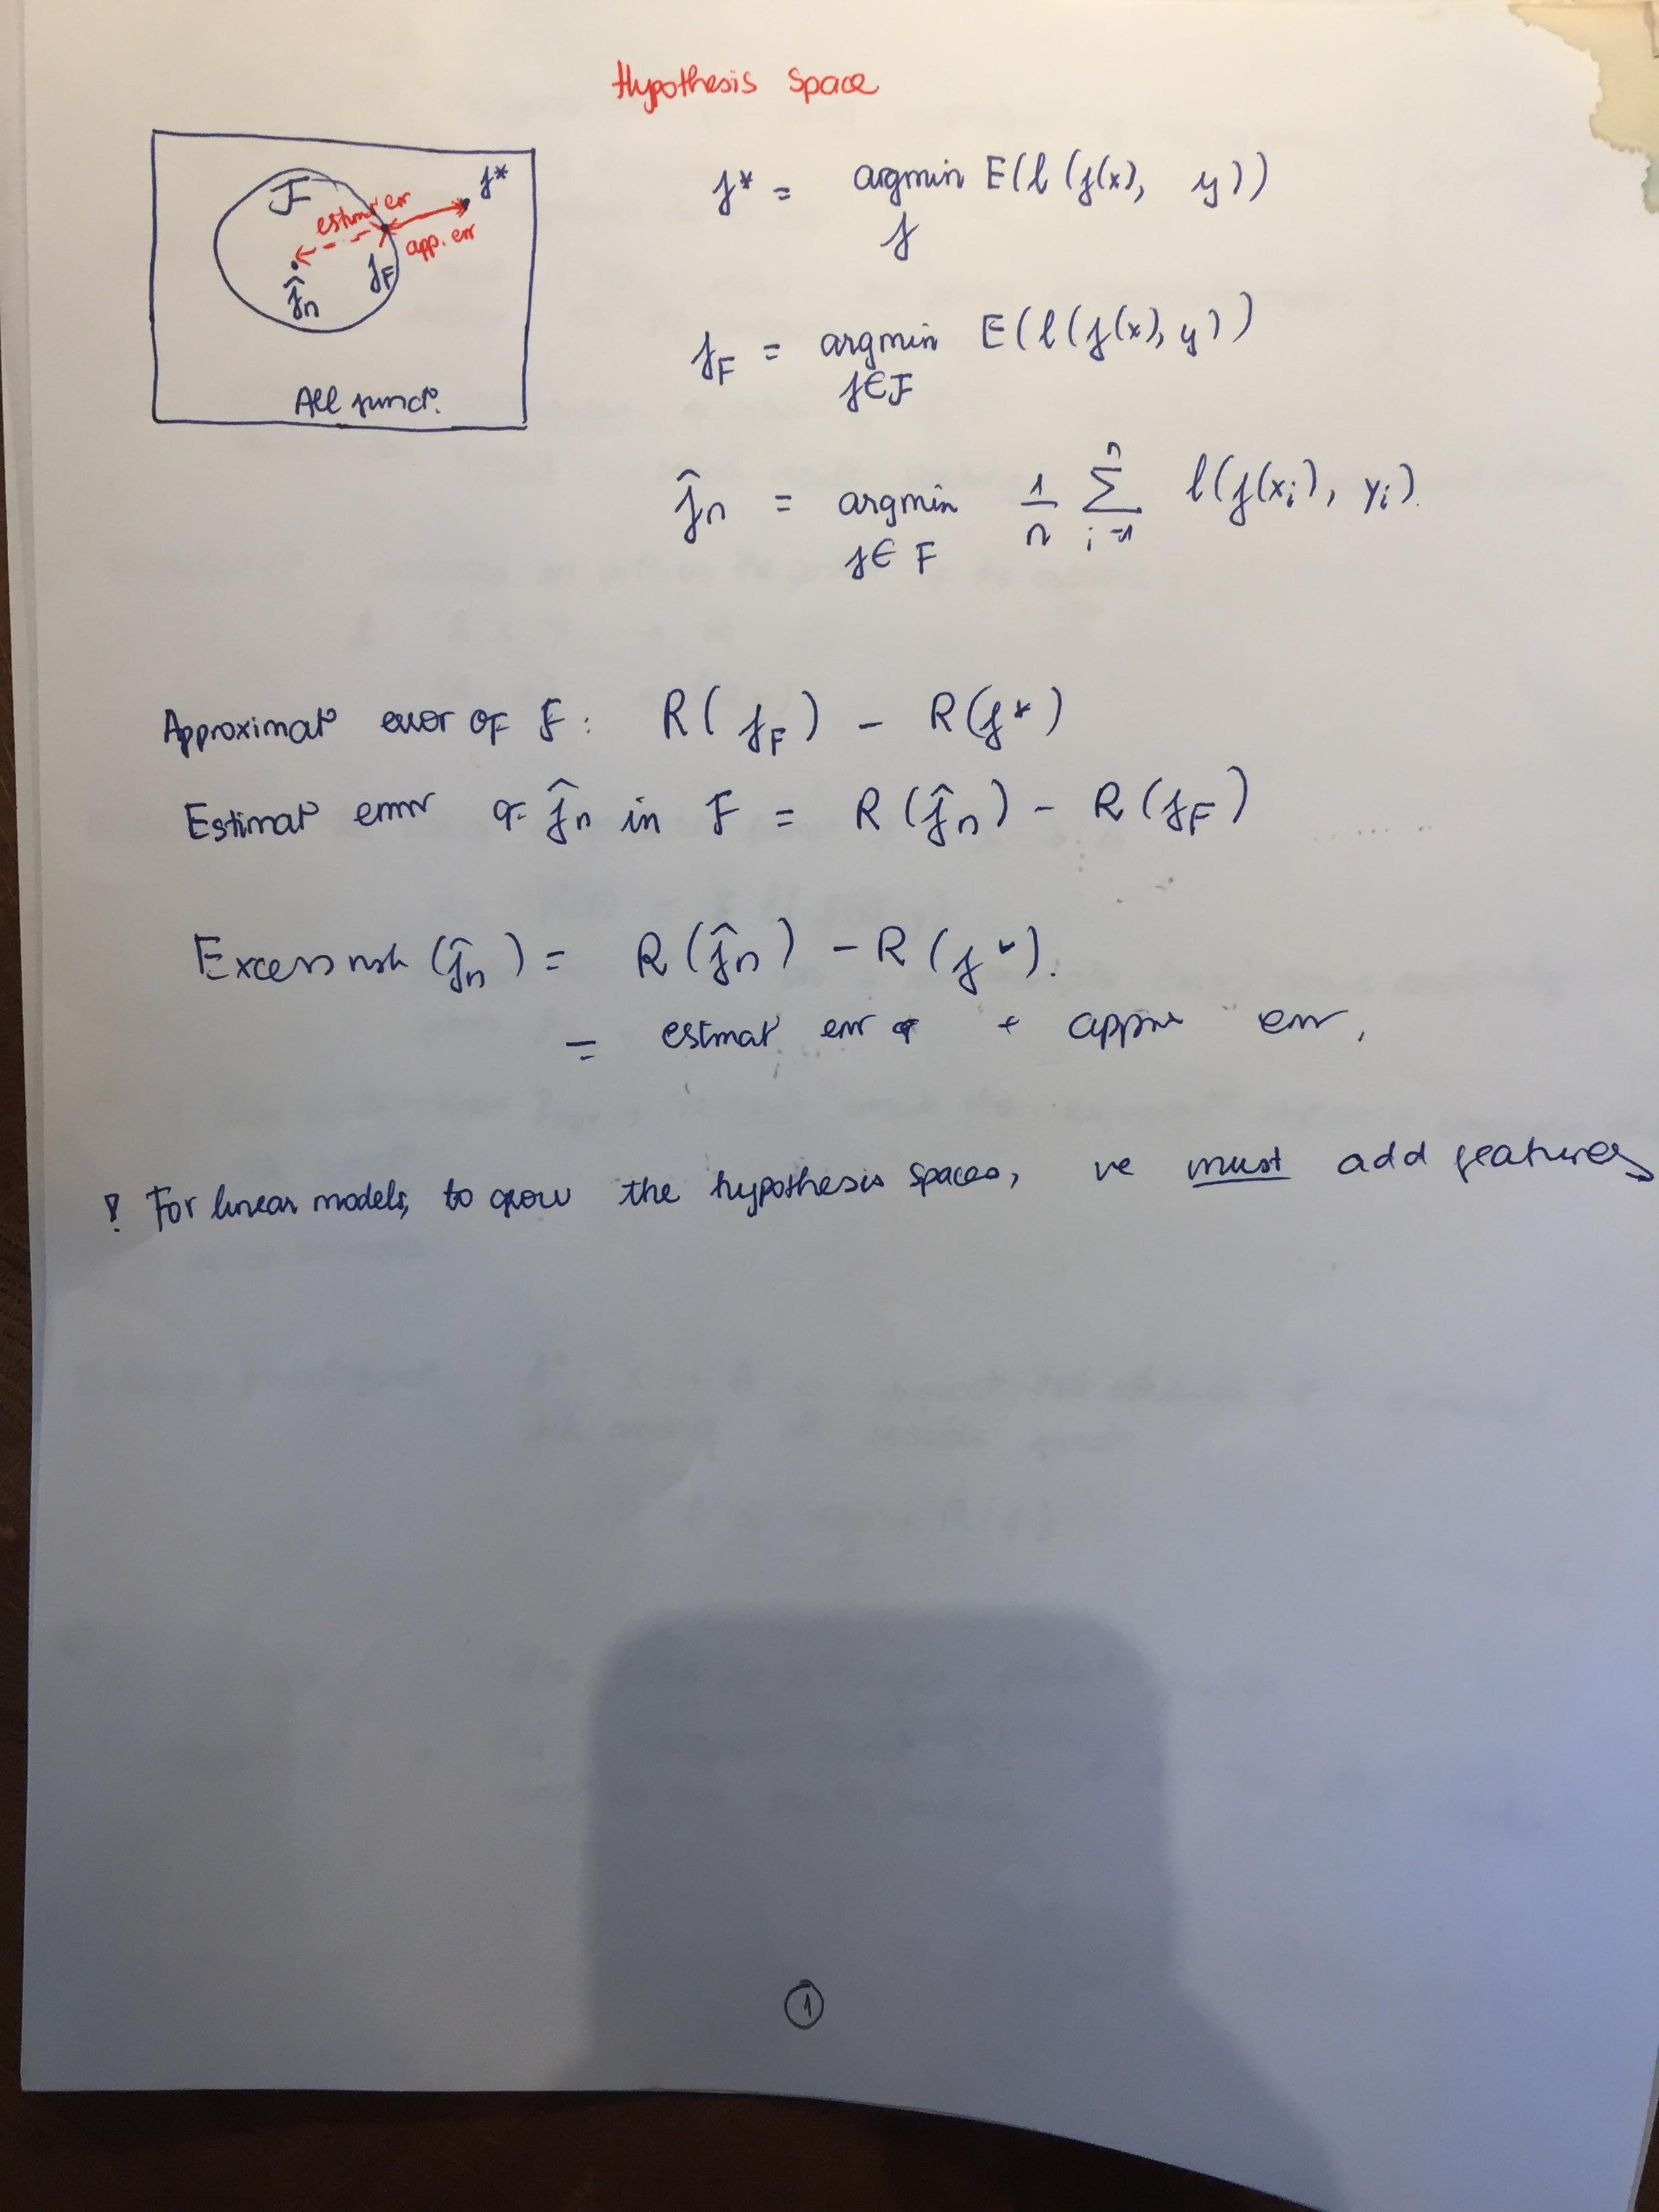 Hypothesis Space
F
f*
estimat° err
app. err
f̂n
fF
All funct°.
f* = argmin E(l(f(x), y))
f
fF = argmin E(l(f(x), y))
f∈F
f̂n = argmin 1/n Σ l(f(xi), yi).
f∈F i=1 n
Approximat° error of F: R(fF) - R(f*)
Estimat° error of f̂n in F = R(f̂n) - R(fF)
Excess risk (f̂n) = R(f̂n) - R(f*).
= estimat° err + approx err.
! For linear models, to grow the hypothesis spaces, we must add features
1